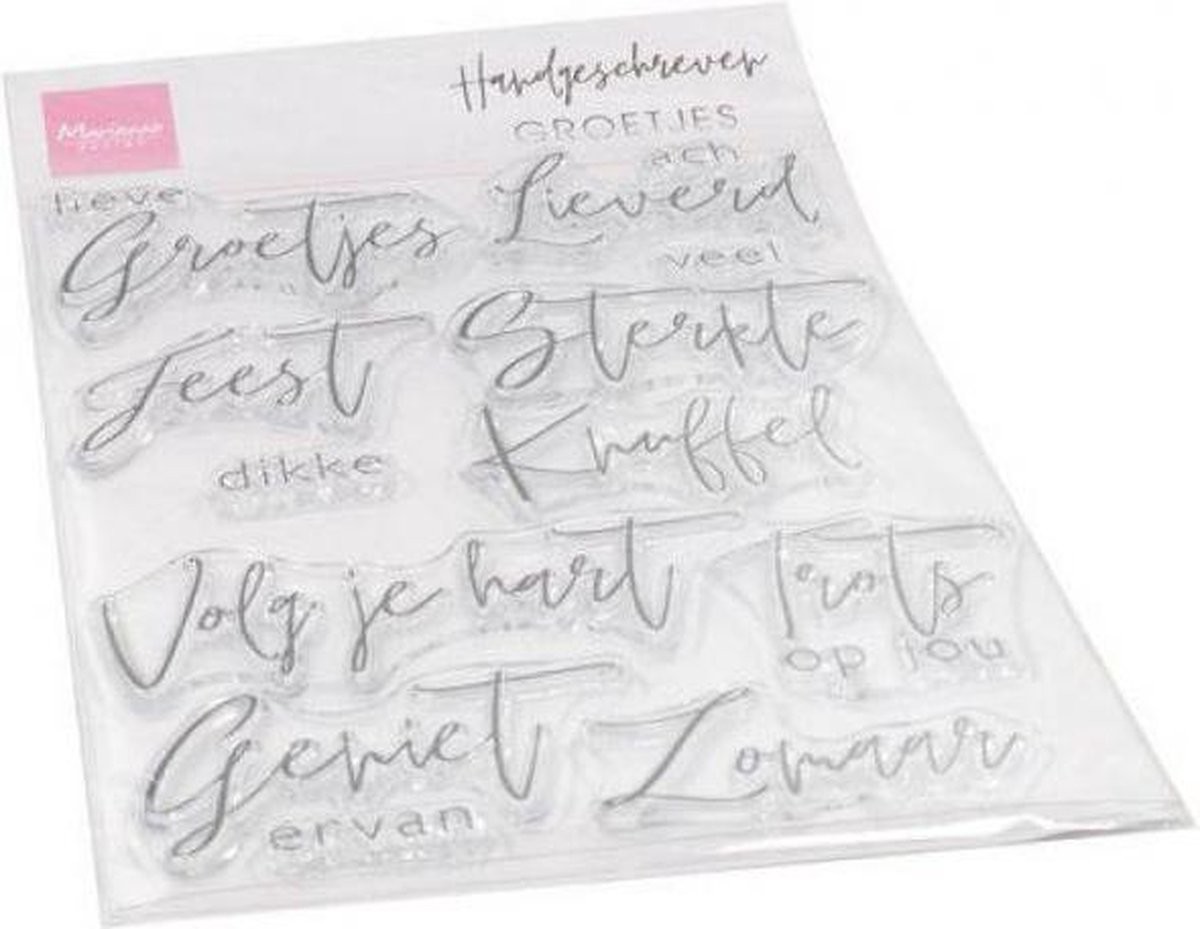 Handgeschreven
GROETJES
Marianne
DESIGN
lieve
Groetjes
ach
Lieverd
veel
Sterkte
Feest
dikke
Knuffel
Volg je hart
Trots
op jou
Geniet
ervan
Zomaar